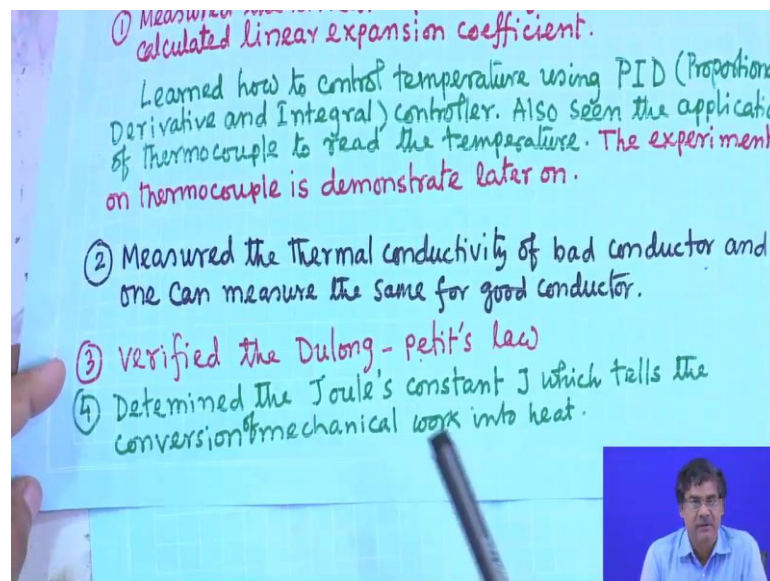 ① Measured the
calculated linear expansion coefficient.
Learned how to control temperature using PID (Proportion
Derivative and Integral) controller. Also seen the applicati
of thermocouple to read the temperature. The experiment
on thermocouple is demonstrate later on.
② Measured the thermal conductivity of bad conductor and
one can measure the same for good conductor.
③ Verified the Dulong - Petit's law
④ Detemined the Joule's constant J which tells the
conversion of mechanical work into heat.